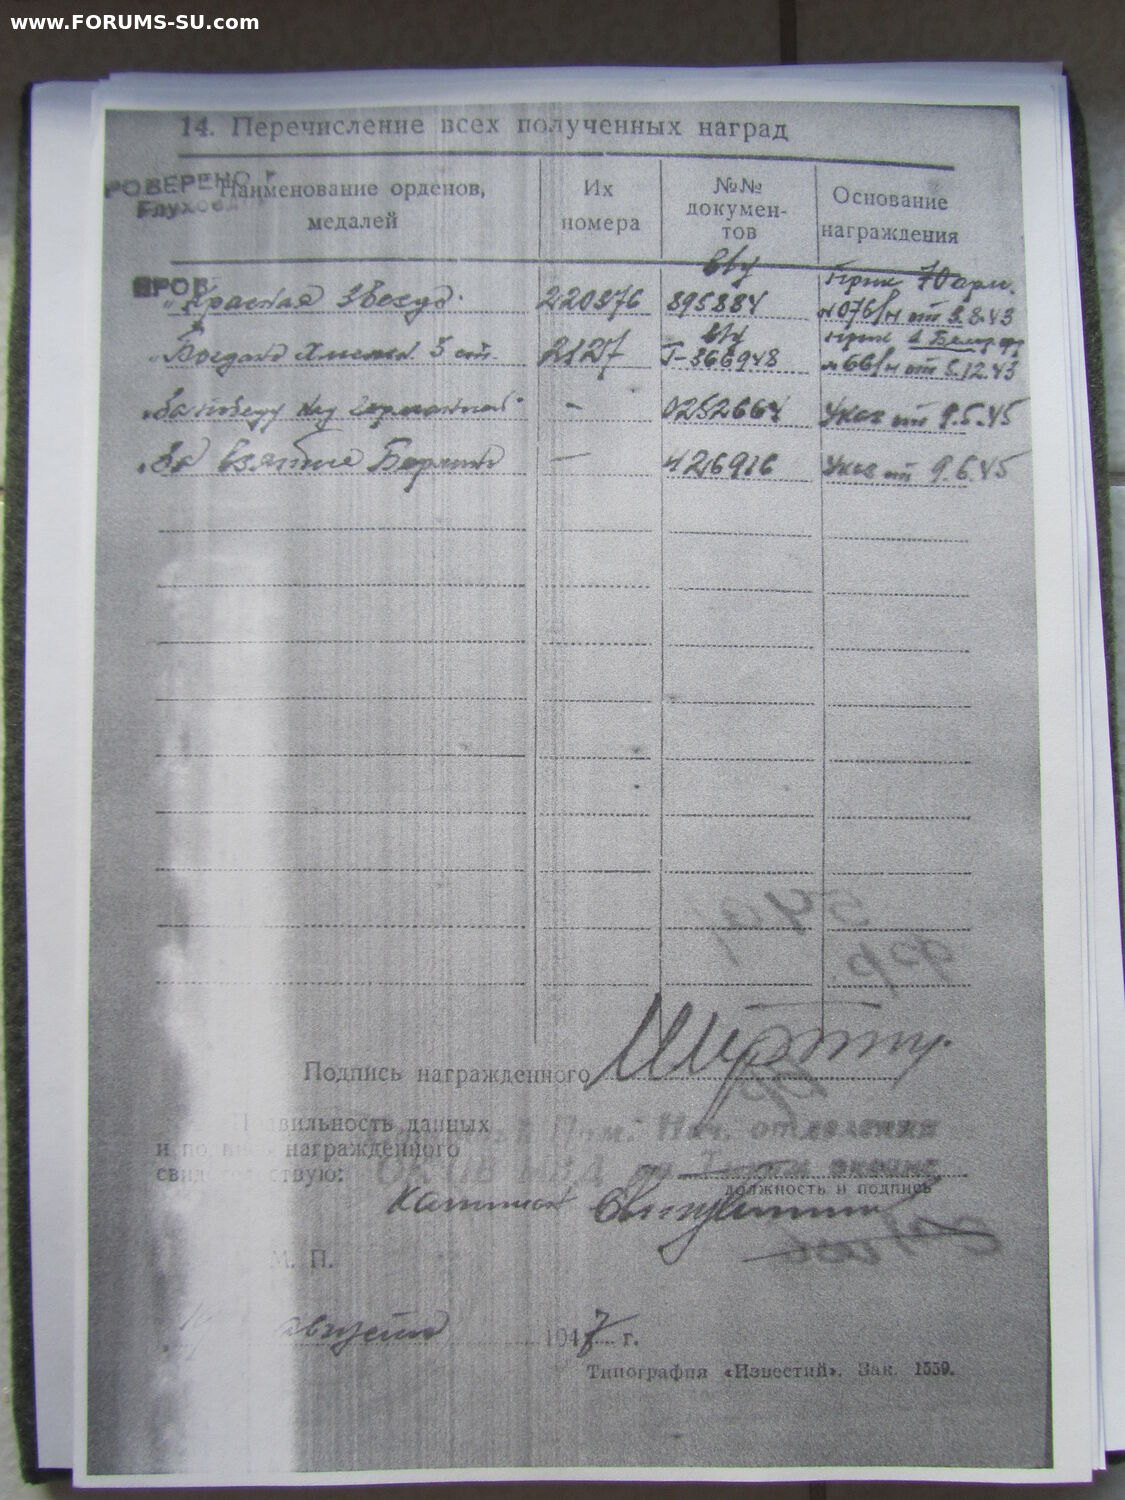 www.FORUMS-SU.com
14. Перечисление всех полученных наград
РОВЕРЕНО
Глухов
Наименование орденов, медалей
Их номера
№№ докумен-тов
Основание награждения
ПРОВ
в/у Прик 70 арм.
"Красная Звезда" 220376 895884 № 076/н от 3.8.43
в/у прик 1 Белор фр
"Богдана Хмельн. 3 ст. 2127 Г-366948 № 66/н от 5.12.43
"За победу над Германией" - 0252664 Указ от 9.5.45
"За взятие Берлина — 426916 Указ от 9.6.45
Подпись награжденного
Правильность данных
и подпись награжденного
свидетельствую:
Пом. Нач. отделения
должность и подпись
Капитан
М. П.
августа 1947 г.
Типография «Известий». Зак. 1559.